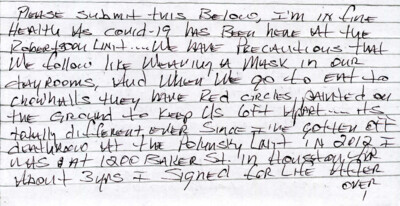 Please submit this Below, I'm in fine
Health As covid-19 has Been here at the
Robertson Unit.... We have precautions that
We follow like Wearing a mask in our
dayrooms, And When We go to eat to
chowhalls they have Red circles, painted on
the ground to keep us 6ft apart... its
totally different, ever since I've gotten off
deathrow at the Polunsky Unit in 2012 I
was at 1200 Baker St. in Houston for
About 3yrs I signed for Life After
over